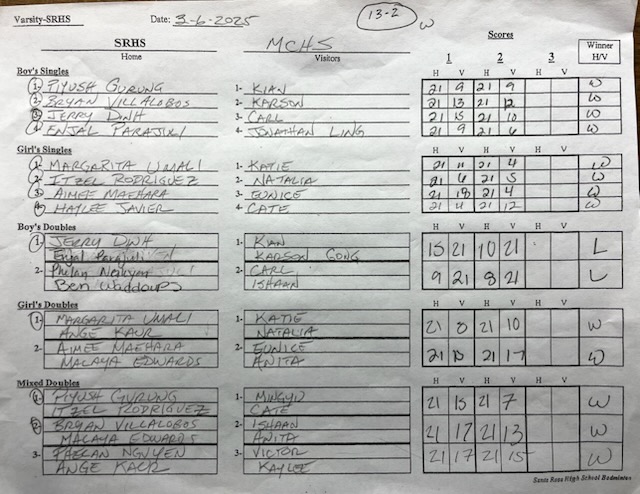 Varsity-SRHS Date: 3-6-2025 13-2 W
SRHS MCHS Scores
Home Visitors 1 2 3 Winner H/V
Boy's Singles H V H V H V
1- PIYUSH GURUNG 1- KIAN 21 9 21 9 W
2- BRYAN VILLALOBOS 2- KARSON 21 13 21 12 W
3- JERRY DINH 3- CARL 21 15 21 10 W
4- ENJAL PARAJULI 4- JONATHAN LING 21 9 21 6 W
Girl's Singles H V H V H V
1- MARGARITA UMALI 1- KATIE 21 11 21 4 W
2- ITZEL RODRIGUEZ 2- NATALIA 21 6 21 5 W
3- AIMEE MAEHARA 3- EUNICE 21 18 21 4 W
4- HAYLEE JAVIER 4- CATE 21 4 21 12 W
Boy's Doubles H V H V H V
1- JERRY DINH 1- KIAN 15 21 10 21 L
Enjal Parajuli KARSON GONG
2- Phelan Nguyen 2- CARL 9 21 8 21 L
Ben Waddoups ISHAAN
Girl's Doubles H V H V H V
1- MARGARITA UMALI 1- KATIE 21 8 21 10 W
ANGE KAUR NATALIA
2- AIMEE MAEHARA 2- EUNICE 21 21 17 W
MALAYA EDWARDS ANITA
Mixed Doubles H V H V H V
1- PIYUSH GURUNG 1- MINGYU 21 15 21 7 W
ITZEL RODRIGUEZ CATE
2- BRYAN VILLALOBOS 2- ISHAAN 21 17 21 13 W
MALAYA EDWARDS ANITA
3- PAELAN NGUYEN 3- VICTOR 21 17 21 15 W
ANGE KAUR KAYLEE
Santa Rosa High School Badminton